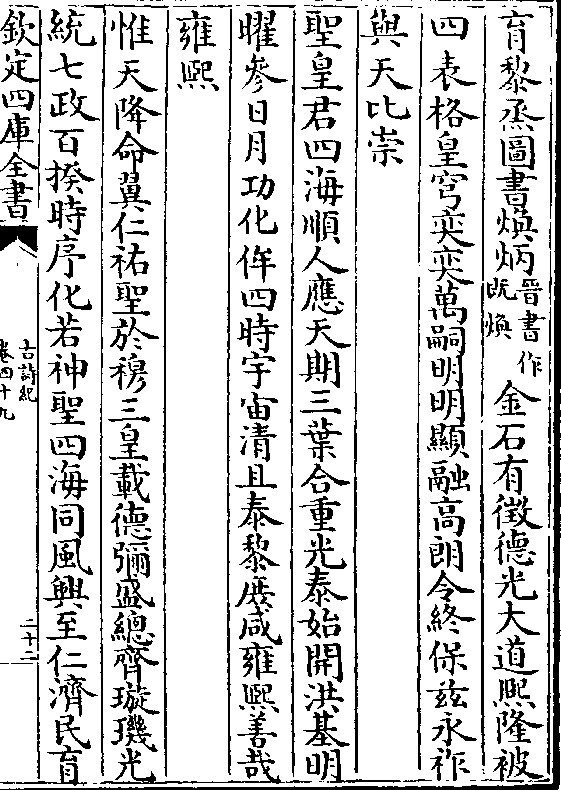 育黎烝圖書煥炳晉書作既煥金石有徵德光大道熙隆被
四表格皇穹奕奕萬嗣明明顯融高朗令終保兹永祚
與天比崇
聖皇君四海順人應天期三葉合重光泰始開洪基明
曜參日月功化侔四時宇宙清且泰黎庶咸雍熙善哉
雍熙
惟天降命翼仁祐聖於穆三皇載德彌盛總齊璇璣光
統七政百揆時序化若神聖四海同風興至仁濟民育
欽定四庫全書
古詩紀
卷四十九
二十二